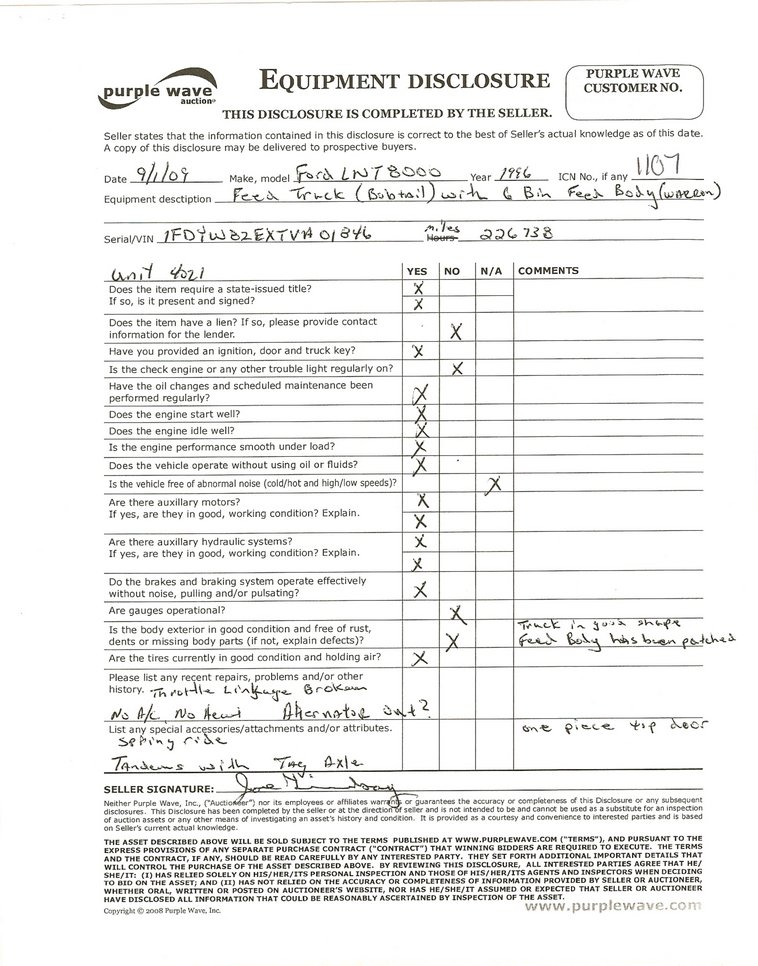 purple wave
auction®
EQUIPMENT DISCLOSURE
PURPLE WAVE
CUSTOMER NO.
THIS DISCLOSURE IS COMPLETED BY THE SELLER.
Seller states that the information contained in this disclosure is correct to the best of Seller's actual knowledge as of this date.
A copy of this disclosure may be delivered to prospective buyers.
Date 9/1/09 Make, model Ford LNT8000 Year 1996 ICN No., if any 1107
Equipment desctiption Feed Truck (Bobtail) with 6 Bin Feed Body (WARREN)
Serial/VIN 1FDYW82EXTVA01846 miles Hours 226738
Unit 4021 YES NO N/A COMMENTS
Does the item require a state-issued title? X
If so, is it present and signed? X
Does the item have a lien? If so, please provide contact
information for the lender. X
Have you provided an ignition, door and truck key? X
Is the check engine or any other trouble light regularly on? X
Have the oil changes and scheduled maintenance been
performed regularly? X
Does the engine start well? X
Does the engine idle well? X
Is the engine performance smooth under load? X
Does the vehicle operate without using oil or fluids? X
Is the vehicle free of abnormal noise (cold/hot and high/low speeds)? X
Are there auxillary motors? X
If yes, are they in good, working condition? Explain. X
Are there auxillary hydraulic systems? X
If yes, are they in good, working condition? Explain. X
Do the brakes and braking system operate effectively
without noise, pulling and/or pulsating? X
Are gauges operational? X
Is the body exterior in good condition and free of rust, Truck in good shape
dents or missing body parts (if not, explain defects)? X Feed Body has been patched
Are the tires currently in good condition and holding air? X
Please list any recent repairs, problems and/or other
history. Throttle Linkage Broken
No A/c No Heat Alternator out?
List any special accessories/attachments and/or attributes. one piece top door
Spring ride
Tandems with Tag Axle
SELLER SIGNATURE:
Neither Purple Wave, Inc., ("Auctioneer") nor its employees or affiliates warrants or guarantees the accuracy or completeness of this Disclosure or any subsequent
disclosures. This Disclosure has been completed by the seller or at the direction of seller and is not intended to be and cannot be used as a substitute for an inspection
of auction assets or any other means of investigating an asset's history and condition. It is provided as a courtesy and convenience to interested parties and is based
on Seller's current actual knowledge.
THE ASSET DESCRIBED ABOVE WILL BE SOLD SUBJECT TO THE TERMS PUBLISHED AT WWW.PURPLEWAVE.COM ("TERMS"), AND PURSUANT TO THE
EXPRESS PROVISIONS OF ANY SEPARATE PURCHASE CONTRACT ("CONTRACT") THAT WINNING BIDDERS ARE REQUIRED TO EXECUTE. THE TERMS
AND THE CONTRACT, IF ANY, SHOULD BE READ CAREFULLY BY ANY INTERESTED PARTY. THEY SET FORTH ADDITIONAL IMPORTANT DETAILS THAT
WILL CONTROL THE PURCHASE OF THE ASSET DESCRIBED ABOVE. BY REVIEWING THIS DISCLOSURE, ALL INTERESTED PARTIES AGREE THAT HE/
SHE/IT: (I) HAS RELIED SOLELY ON HIS/HER/ITS PERSONAL INSPECTION AND THOSE OF HIS/HER/ITS AGENTS AND INSPECTORS WHEN DECIDING
TO BID ON THE ASSET; AND (II) HAS NOT RELIED ON THE ACCURACY OR COMPLETENESS OF INFORMATION PROVIDED BY SELLER OR AUCTIONEER,
WHETHER ORAL, WRITTEN OR POSTED ON AUCTIONEER'S WEBSITE, NOR HAS HE/SHE/IT ASSUMED OR EXPECTED THAT SELLER OR AUCTIONEER
HAVE DISCLOSED ALL INFORMATION THAT COULD BE REASONABLY ASCERTAINED BY INSPECTION OF THE ASSET.
www.purplewave.com
Copyright © 2008 Purple Wave, Inc.